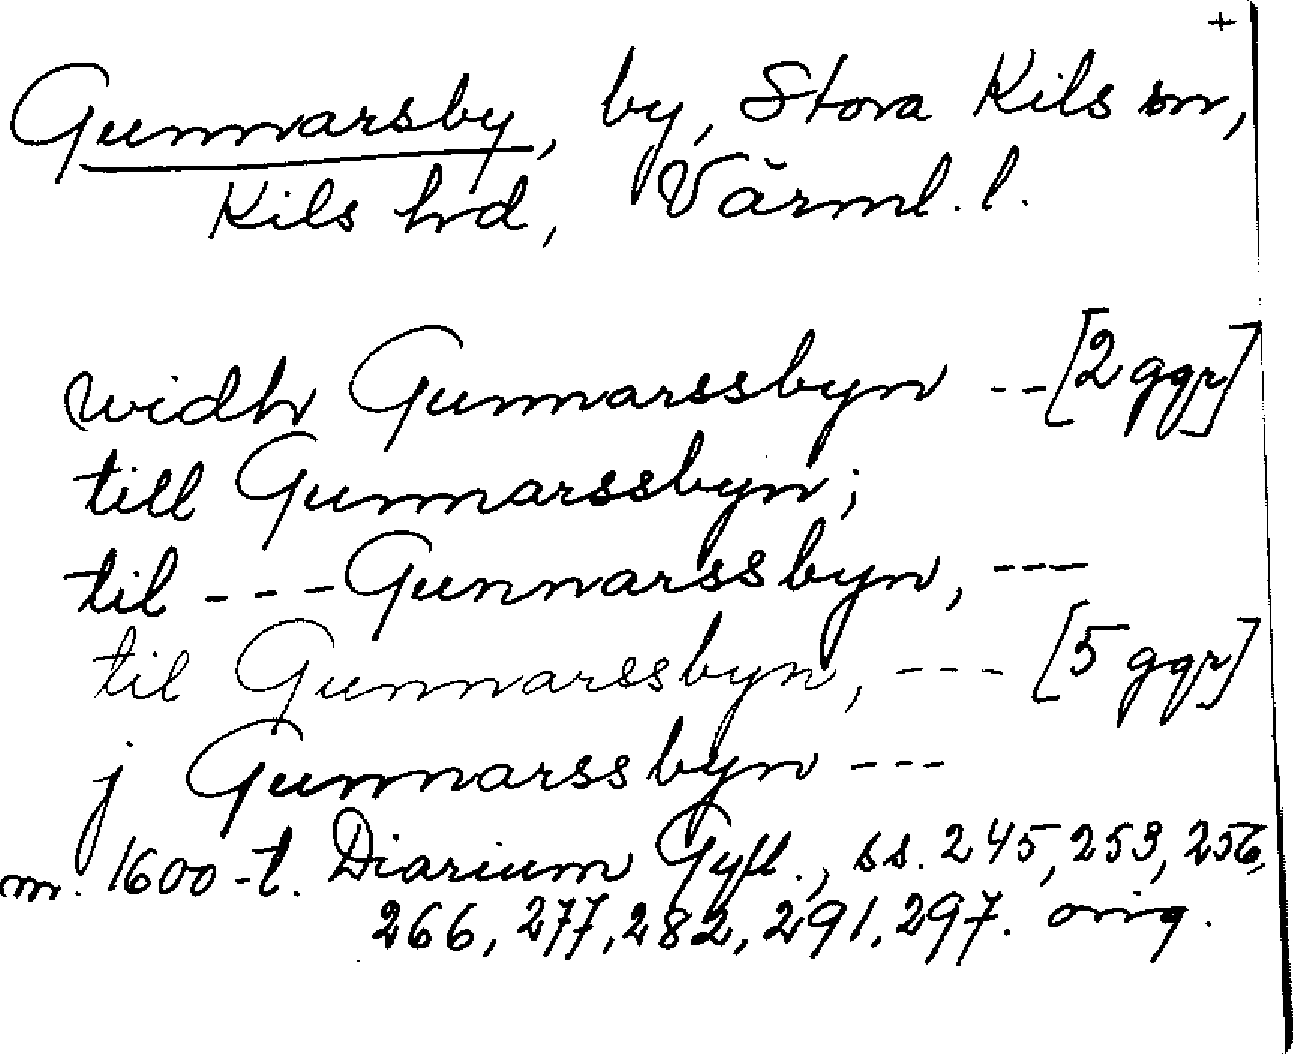 +
Gunnarsby, by, Stora Kils sn,
Kils hd, Värml. l.
widh Gunnarssbyn -- [2 ggr]
till Gunnarssbyn;
til --- Gunnarssbyn, ---
til Gunnarssbyn, --- [5 ggr]
j Gunnarssbyn ---
m. 1600-t. Diarium Gyll., ss. 245, 253, 256,
266, 277, 282, 291, 297. orig.